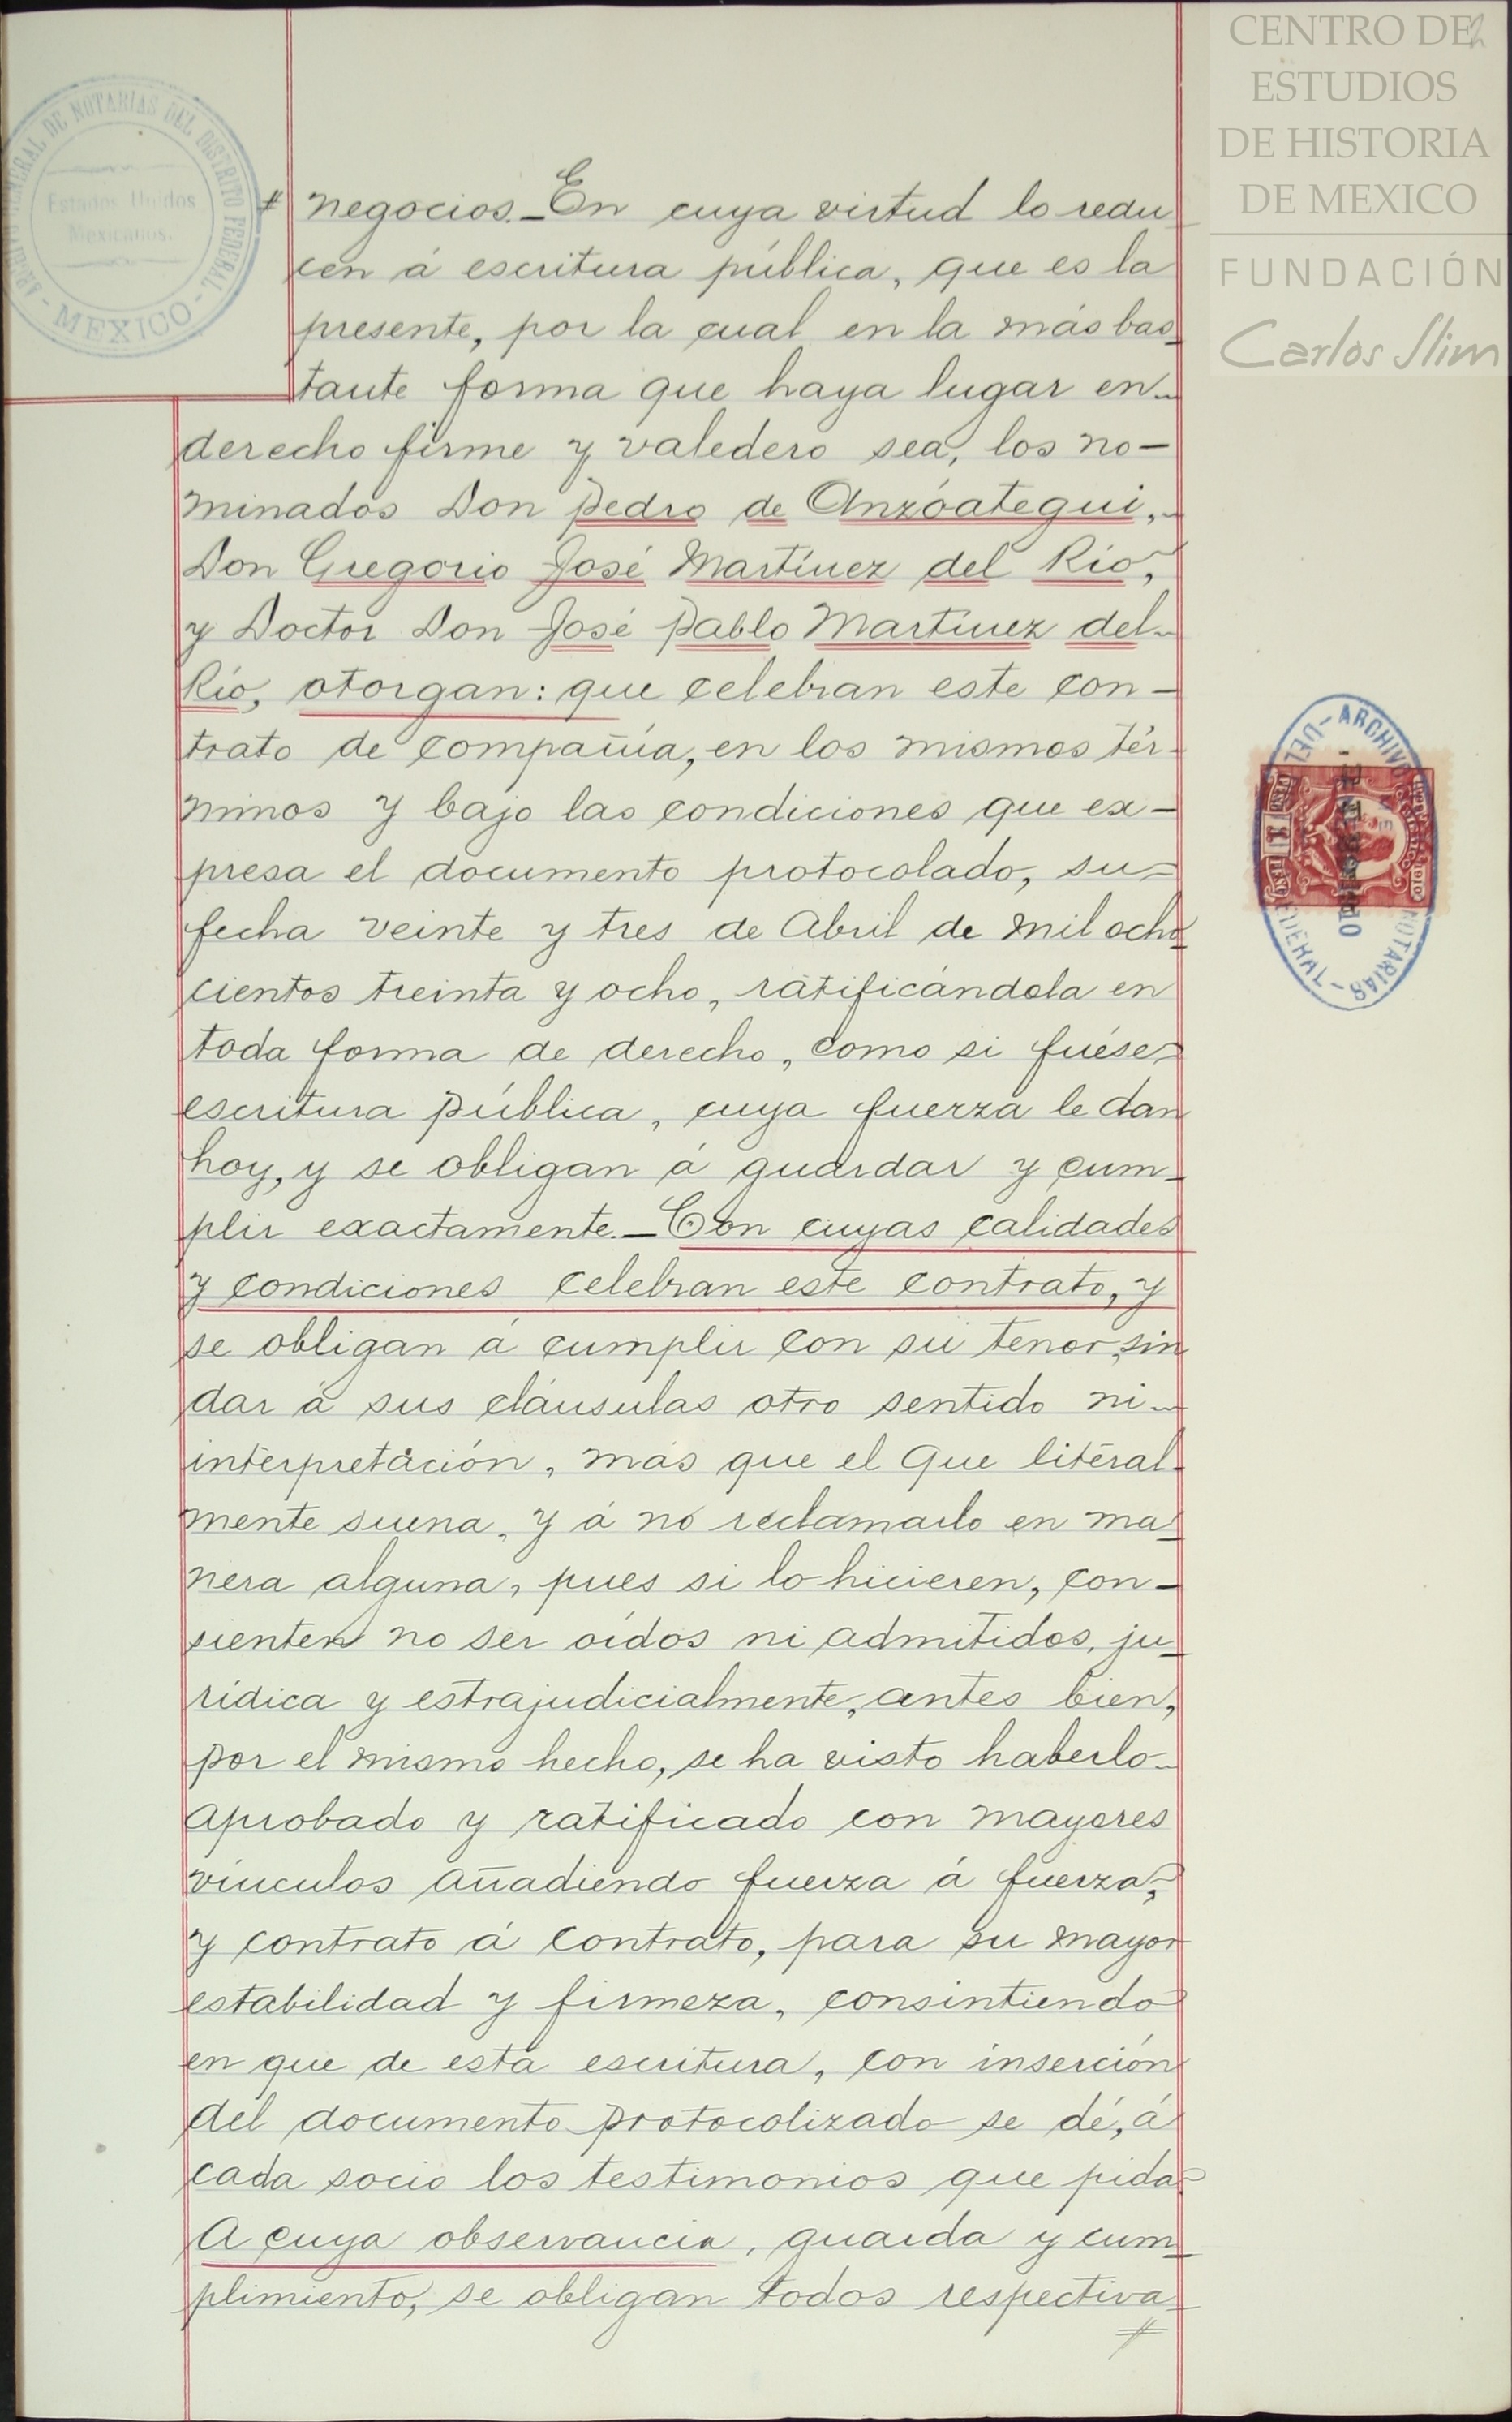 CENTRO DE
ESTUDIOS
DE HISTORIA
DE MEXICO
FUNDACIÓN
Carlos Slim
GENERAL DE NOTARIAS DEL DISTRITO FEDERAL
Estados Unidos
Mexicanos.
- MEXICO -
negocios.- En cuya virtud lo redu-
cen á escritura pública, que es la
presente, por la cual en la más bas-
tante forma que haya lugar en-
derecho firme y valedero sea, los no-
minados Don Pedro de Anzóategui,-
Don Gregorio José Martínez del Río,
y Doctor Don José Pablo Martínez del-
Río, otorgan: que celebran este con-
trato de compañía, en los mismos tér-
minos y bajo las condiciones que ex-
presa el documento protocolado, su-
fecha veinte y tres de Abril de mil ocho-
cientos treinta y ocho, ratificándola en
toda forma de derecho, como si fuése-
escritura pública, cuya fuerza le dan
hoy, y se obligan á guardar y cum-
plir exactamente.- Con cuyas calidades
y condiciones celebran este contrato, y
se obligan á cumplir con su tenor, sin
dar á sus cláusulas otro sentido ni-
interpretación, más que el que literal-
mente suena, y á no reclamarlo en ma-
nera alguna, pues si lo hicieren, con-
sienten no ser oídos ni admitidos, ju-
rídica y estrajudicialmente, antes bien,
por el mismo hecho, se ha visto haberlo-
aprobado y ratificado con mayores
vínculos añadiendo fuerza á fuerza,
y contrato á contrato, para su mayor
estabilidad y firmeza, consintiendo
en que de esta escritura, con inserción
del documento protocolizado se dé, á
cada socio los testimonios que pida-
A cuya observancia, guarda y cum-
plimiento, se obligan todos respectiva-
ARCHIVO
NOTARIAS